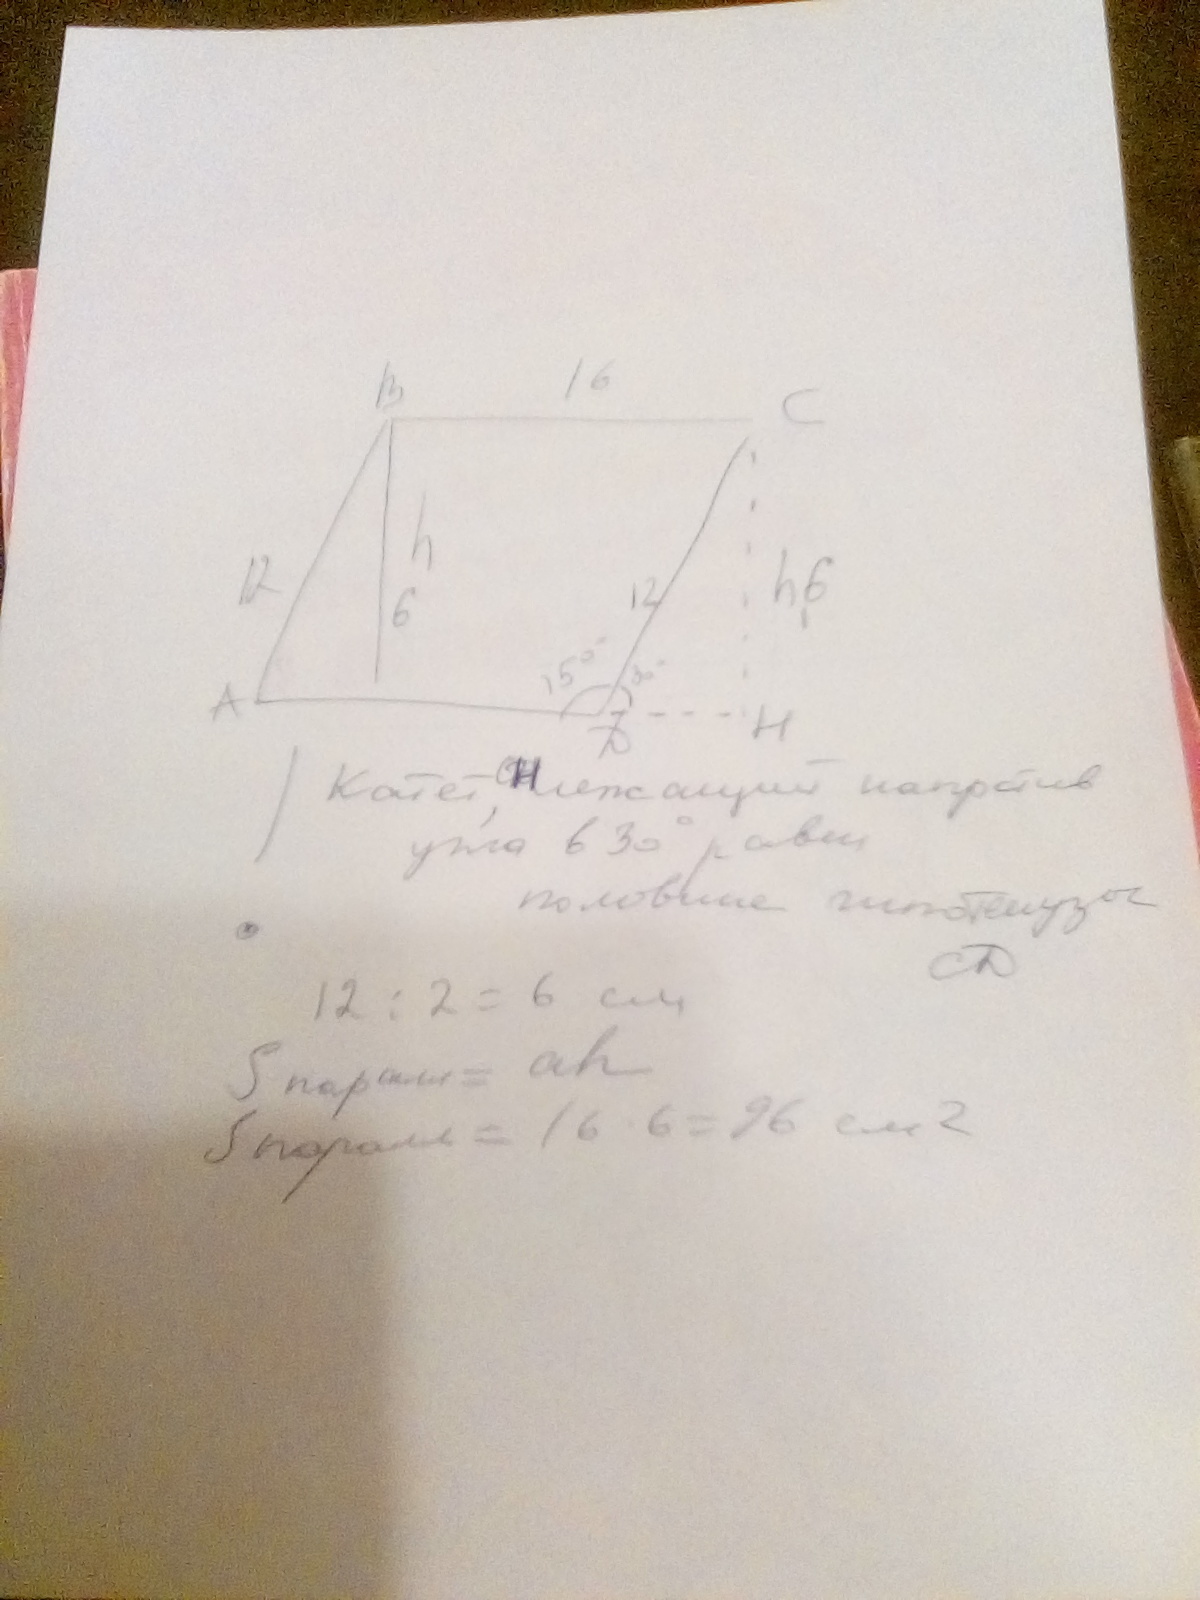 16
B
C
12
h
6
12
h 6
150°
30°
A
D
H
Катет, CH лежащий напротив
угла в 30° равен
половине гипотенузы
CD
12 : 2 = 6 см
S парал = ah
S парал = 16 · 6 = 96 см2